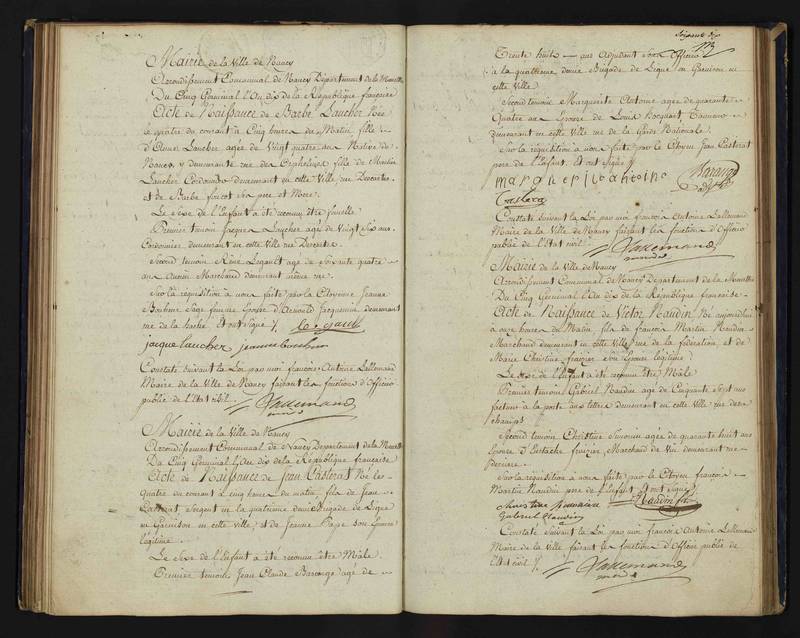 Mairie de la Ville de Nancy
Arrondissement Communal de Nancy Departement de la Meurthe
Du Cinq Germinal l'An dix de la République française
Acte de Naissance de Barbe Laucher Née
le quatre du courant à Cinq heures du Matin fille
d'Anne Laucher agée de Vingt quatre ans Native de
Nancy y demeurante rue des Orphelines fille de Martin
Laucher Cordonnier demeurant en cette Ville rue Descartes
et de Barbe son père et Mère.
Le Sexe de l'Enfant a été reconnu être femelle
Premier temoin Jacque Laucher agé de Vingt Six ans
Cordonnier demeurant en cette Ville rue Descartes.
Second temoin Rene Legault agé de Soixante quatre
ans Ancien Marchand demeurant même rue.
Sur la réquisition à nous faite par la Citoyenne Jeanne
Barbeme Sage femme Epouse d'Arnould Jacquemin demeurant
rue de la hache Et ont signé /.
jacque laucher
Constaté Suivant la Loi par moi françois Antoine Lallemand
Maire de la Ville de Nancy faisant les fonctions d'Officier
public de l'Etat civil. /. Lallemand
maire
Mairie de la Ville de Nancy
Arrondissement Communal de Nancy Departement de la Meurthe
Du Cinq Germinal l'An dix de la République française
Acte de Naissance de Jean Casterat Né le
quatre du courant à cinq heures du matin, fils de Jean
Casterat, Sergent en la quatrieme demi Brigade de Ligne
en Garnison en cette ville et de Jeanne Page son Epouse
légitime.
Le Sexe de l'Enfant a été reconnu être Mâle.
Premier temoin Jean Claude agé de
Soixante dix
173
Trente huit ans Adjudant Sous Officier
à la quatrieme demie Brigade de Ligne en Garnison en
cette Ville
Second temoin Marguerite Antoine agée de quarante
quatre ans Epouse de Louis Tanneur
demeurant en cette Ville rue de la Garde Nationale.
Sur la réquisition a nous faite par le Citoyen Jean Casterat
pere de l'Enfant. Et ont signé /.
Constaté Suivant la Loi par moi françois Antoine Lallemand
Maire de la Ville de Nancy faisant les fonctions d'Officier
public de l'Etat civil. /. Lallemand
maire
Mairie de la Ville de Nancy
Arrondissement Communal de Nancy Departement de la Meurthe
Du Cinq Germinal l'An dix de la République française
Acte de Naissance de Victor Naudin Né aujourdhui
à onze heures du Matin fils de françois Martin Naudin
Marchand demeurant en cette Ville rue de la fédération, et de
Marie Christine son Epouse légitime
Le Sexe de l'Enfant a été reconnu être Mâle
Premier temoin Gabriel Naudin agé de Cinquante Sept ans
facteur à la poste aux lettres demeurant en cette Ville rue
champs
Second temoin Christine agée de quarante huit ans
Epouse d'Eustache Marchand de Vin demeurant rue
derriere.
Sur la réquisition a nous faite par le Citoyen françois
Martin Naudin pere de l'Enfant. Et ont signé
Naudin
Gabriel Naudin
Constaté Suivant la Loi par moi françois Antoine Lallemand
Maire de la Ville faisant les fonctions d'Officier public de
l'Etat civil /. Lallemand
maire